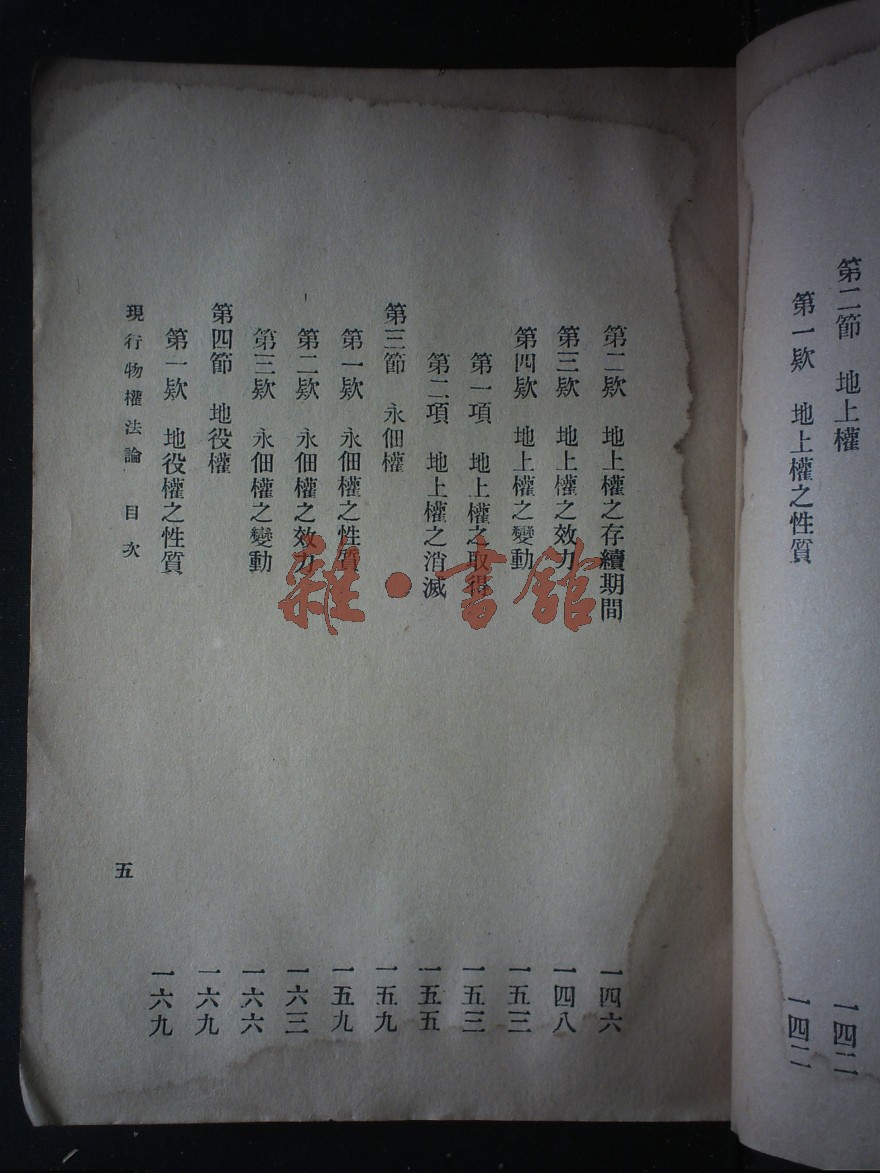 第二節　地上權　一四二
第一欵　地上權之性質　一四二
第二欵　地上權之存續期間　一四六
第三欵　地上權之效力　一四八
第四欵　地上權之變動　一五三
第一項　地上權之取得　一五三
第二項　地上權之消滅　一五五
第三節　永佃權　一五九
第一欵　永佃權之性質　一五九
第二欵　永佃權之效力　一六三
第三欵　永佃權之變動　一六六
第四節　地役權　一六九
第一欵　地役權之性質　一六九
現行物權法論　目次　五
雜·書館